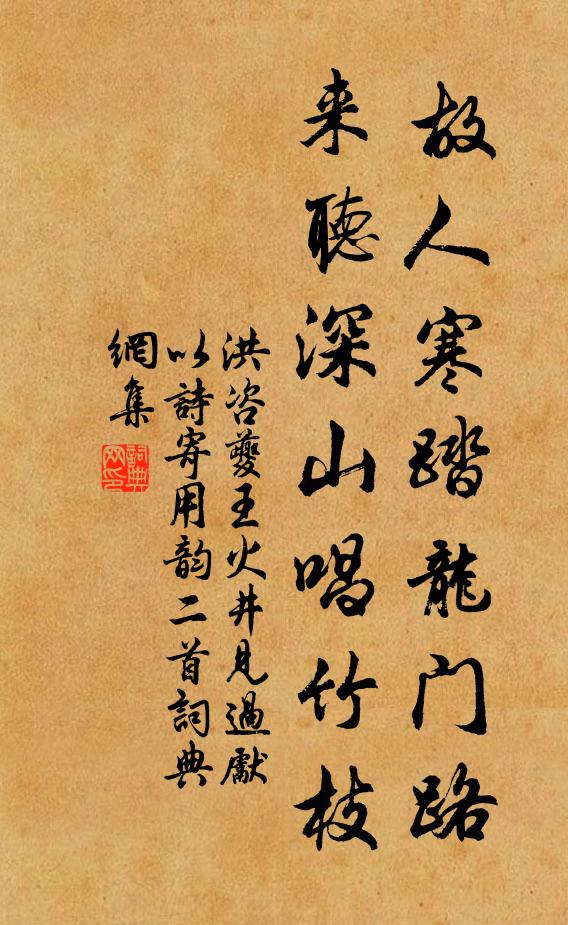 故人寒踏龍门路
来聽深山唱竹枝
洪咨夔王火井見過獻
以詩寄用韵二首詞典
網集
詞典網印